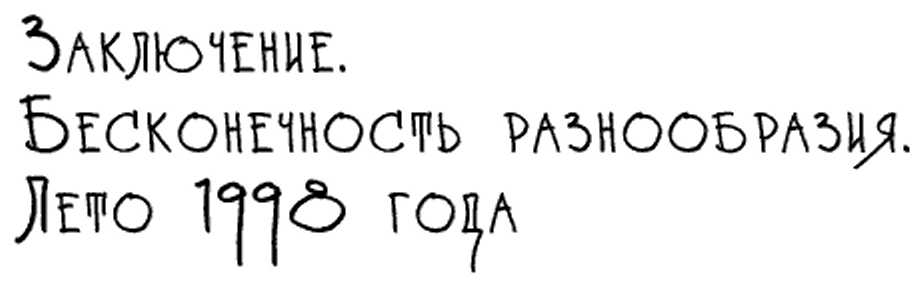 Заключение.
Бесконечность разнообразия.
Лето 1998 года